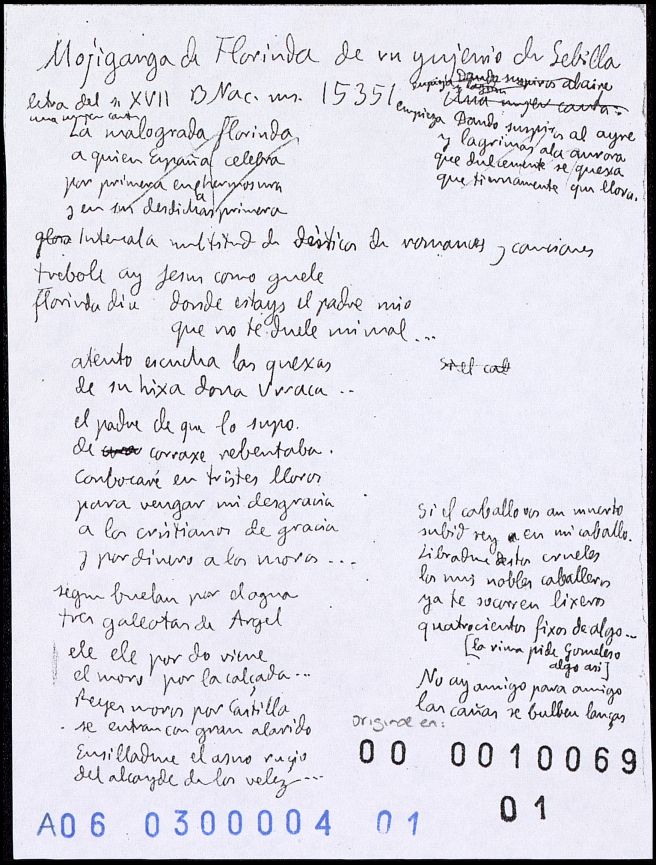 Mojiganga de Florinda de un ynjenio de Sebilla
letra del s. XVII B Nac. ms. 15351
empieza Dando suspiros al aire
y lagrim
Una mujer canta.
empieza Dando suspiros al ayre
y lagrimas a la aurora
que dulcemente se quexa
que tiernamente que llora.
una mujer canta
La malograda florinda
a quien España celebra
por primera en hermosura
y en sus desdichas primera
glosa Intercala multitud de dísticos de romances y canciones
trebole ay Jesus como guele
florinda dice donde estays el padre mio
que no te duele mi mal...
atento escucha las quexas
de su hixa dona Vrraca...
Si el cab
el padre de que lo supo.
de corraxe rebentaba.
conbocaré en tristes lloros
para vengar mi desgracia
a los cristianos de gracia
y por dinero a los moros...
segun buelan por el agua
tres galeotas de Argel
ele ele por do viene
el moro por la calçada...
Reyes moros por Castilla
se entran con gran alarido
Ensilladme el asno ruçio
del alcayde de los velez...
Si el caballo vos an muerto
subid rey en mi caballo.
Libradme destos crueles
los mis nobles caballeros
ya te socorren lixeros
quatrocientos fixos de algo...
[la rima pide Gomeles o
algo asi]
No ay amigo para amigo
las cañas se buelben lanças
original en:
00 0010069
01
A06 0300004 01